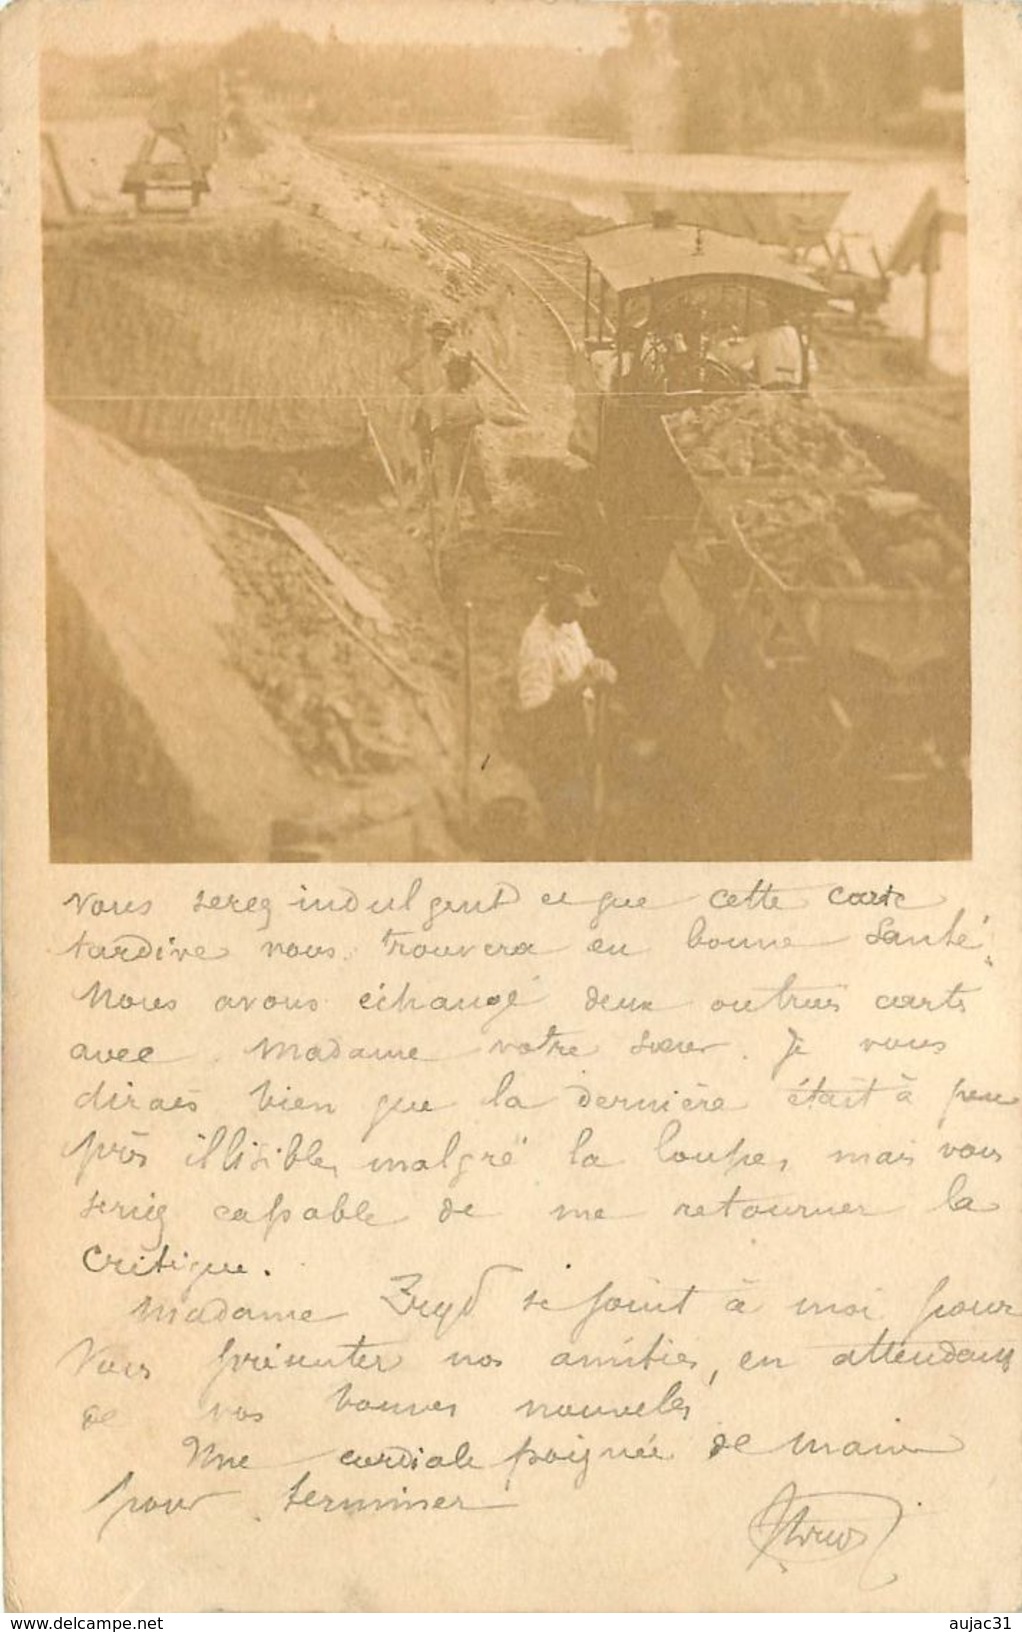 vous serez indulgent et que cette carte
tardive vous trouvera en bonne santé.
Nous avons échangé deux outrës carts
avec Madame votre sœur. Je vous
dirais bien que la dernière était à peu
près illisible, malgré la loupe, mais vous
seriez capable de me retourner la
critique.
Madame se joint à moi pour
vous présenter nos amitiés, en attendant
de vos bonnes nouvelles
Une cordiale poignée de main
pour terminer
https://www.delcampe.net
aujac31